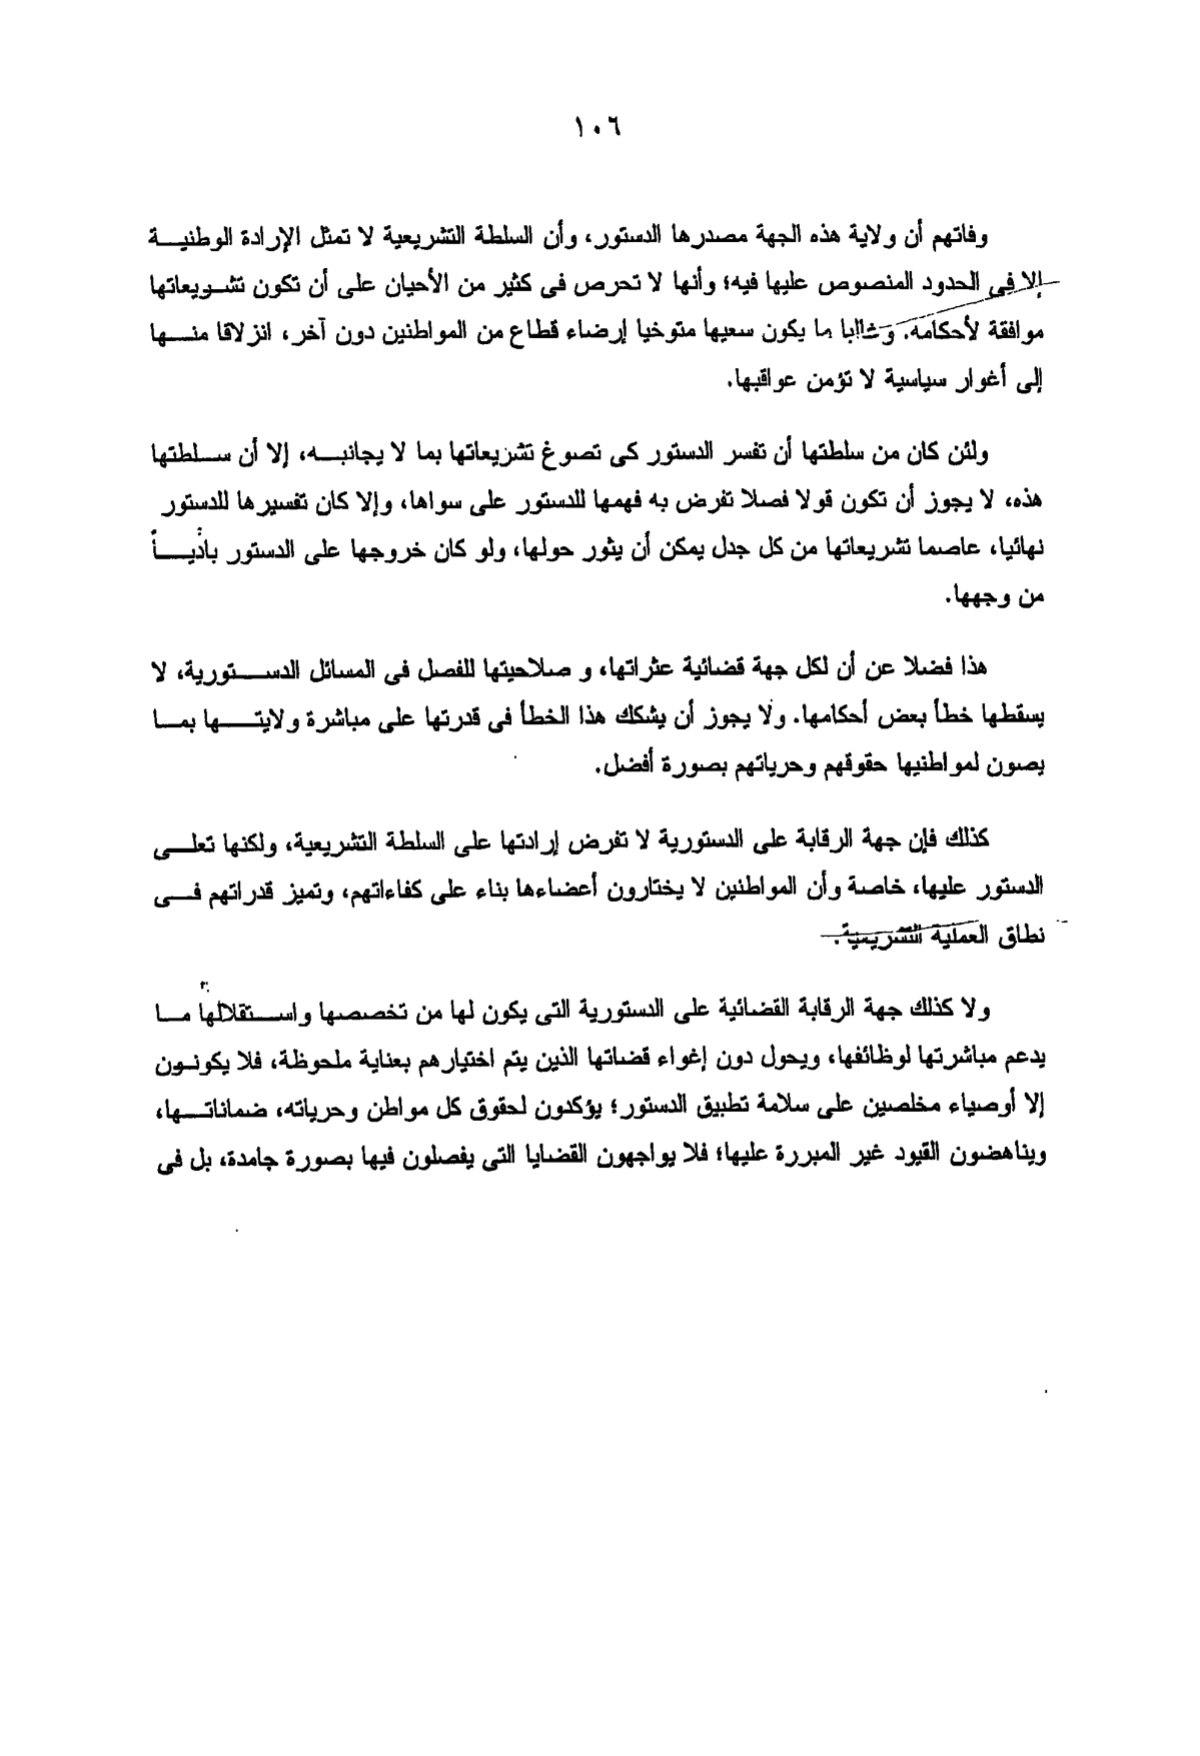 ١٠٦
وفاتهم أن ولاية هذه الجهة مصدرها الدستور، وأن السلطة التشريعية لا تمثل الإرادة الوطنية
إلا فى الحدود المنصوص عليها فيه؛ وأنها لا تحرص فى كثير من الأحيان على أن تكون تشريعاتها
موافقة لأحكامه. وغالبا ما يكون سعيها متوخيا إرضاء قطاع من المواطنين دون آخر، انزلاقا منها
إلى أغوار سياسية لا تؤمن عواقبها.
ولئن كان من سلطتها أن تفسر الدستور كى تصوغ تشريعاتها بما لا يجانبه، إلا أن سلطتها
هذه، لا يجوز أن تكون قولا فصلا تفرض به فهمها للدستور على سواها، وإلا كان تفسيرها للدستور
نهائيا، عاصما تشريعاتها من كل جدل يمكن أن يثور حولها، ولو كان خروجها على الدستور باديـاً
من وجهها.
هذا فضلا عن أن لكل جهة قضائية عثراتها، و صلاحيتها للفصل فى المسائل الدستورية، لا
يسقطها خطأ بعض أحكامها. ولا يجوز أن يشكك هذا الخطأ فى قدرتها على مباشرة ولايتها بما
يصون لمواطنيها حقوقهم وحرياتهم بصورة أفضل.
كذلك فإن جهة الرقابة على الدستورية لا تفرض إرادتها على السلطة التشريعية، ولكنها تعلى
الدستور عليها، خاصة وأن المواطنين لا يختارون أعضاءها بناء على كفاءاتهم، وتميز قدراتهم فى
نطاق العملية التشريعية.
ولا كذلك جهة الرقابة القضائية على الدستورية التى يكون لها من تخصصها واستقلالها ما
يدعم مباشرتها لوظائفها، ويحول دون إغواء قضاتها الذين يتم اختيارهم بعناية ملحوظة، فلا يكونون
إلا أوصياء مخلصين على سلامة تطبيق الدستور؛ يؤكدون لحقوق كل مواطن وحرياته، ضماناتها،
ويناهضون القيود غير المبررة عليها؛ فلا يواجهون القضايا التى يفصلون فيها بصورة جامدة، بل فى